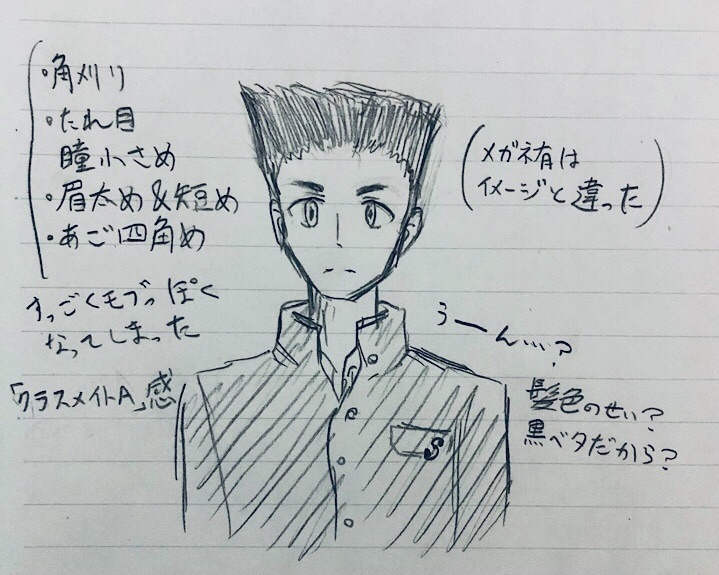 ・角刈り
・たれ目
瞳小さめ
・眉太め&短め
・あご四角め
すっごくモブっぽく
なってしまった
「クラスメイトA」感
(メガネ有は
イメージと違った)
うーん…?
髪色のせい?
黒ベタだから?
S